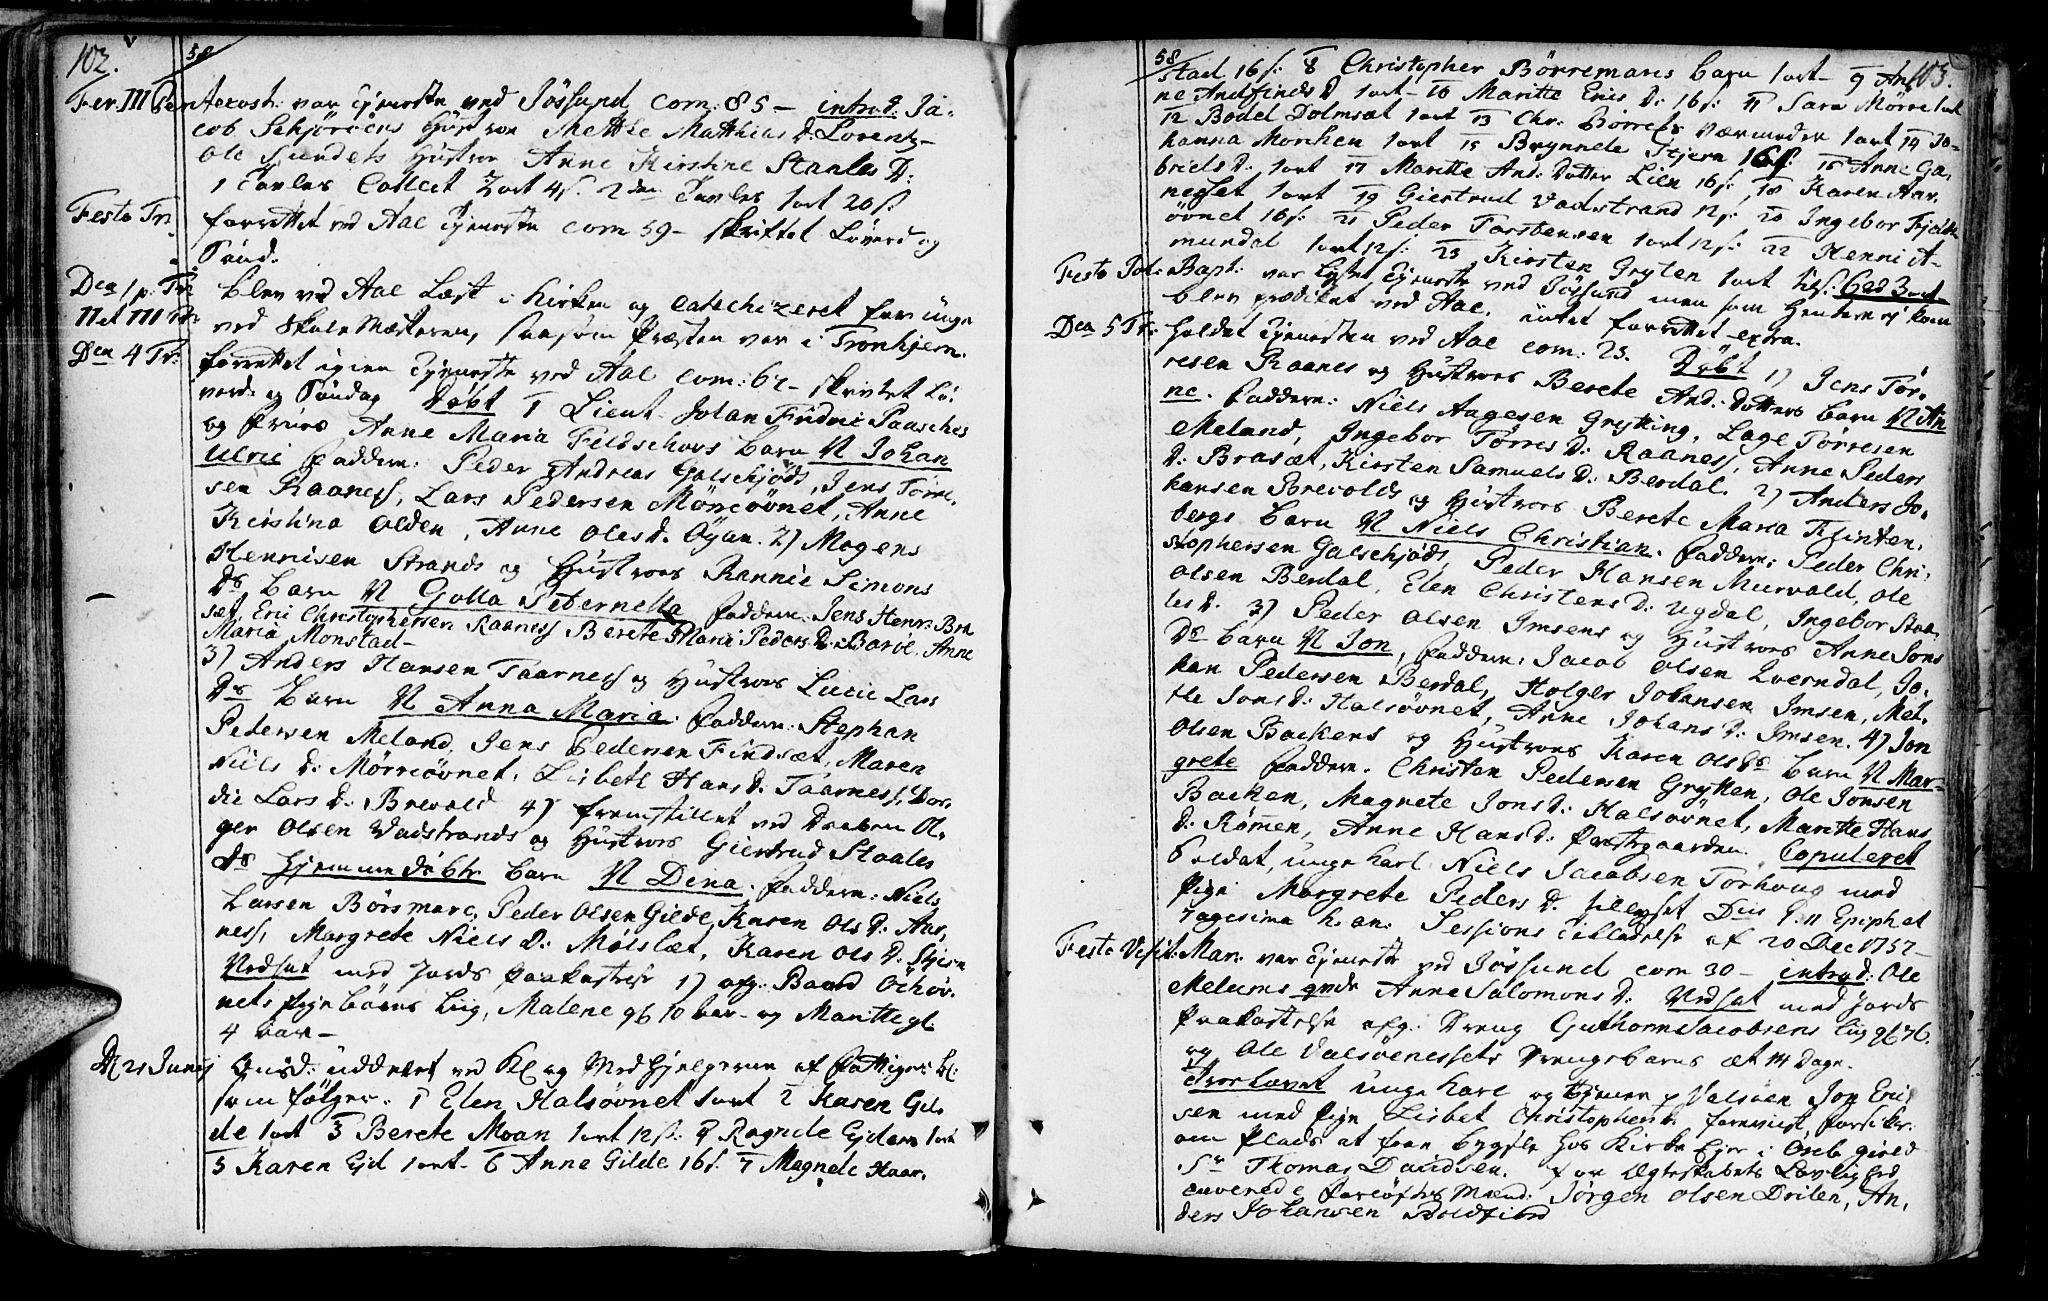 102.
58
Fer. III Pentecost: var Tjeneste ved Jössund com: 85 – introd: Ja-
cob Schjöröens Hustroe Mette Matthias D: Lorentz
Ole Sundets Hustroe Anne Kirstine Stanles D:
1 Tavles Collect 2 ort 4 s. 2den Tavles 1 ort 20 s.
Festo Tri. forrettet ved Aae Tjeneste com 59 – skriftet Löverd og
Sönd.
Dca 1 p. Tr. II et III Tr. blev ved Aae Læst i Kirken og Catechizeret for unge
ved Skolemesteren, saasom Præsten var i Tronhjem.
Dca 4 Tr: forrettet igien Tjeneste ved Aae com: 62 – skriftet Lö-
verd. og Söndag Döbt 1 Lieut. Johan Fridric Paasches
og Frues Anne Maria Feldschous barn N Johan
Ulric Faddere: Peder Andreas Galschjöds, Jens Törre-
sen Raaness, Lars Pedersen Mörreövnet, Anne
Kirstina Olden, Anne Oles D. Öyan. 2) Mogens
Henricsen Strands og Hustroes Rannie Simons
Ds barn N Golla Peternella Faddere: Jens Henr: Bra
sæt, Eric Christophersen Raaness Berete Maria Peders D: Baröe, Anne
Maria Monstad –
3) Anders Hansen Taarness og Hustroes Lucie Lars
Ds barn N Anna Maria. Faddere: Stephan
Pedersen Meland, Jens Pedersen Findsæt, Maren
Niels D: Mörreövnet, Lisbeth Hans D. Taarness, Dor-
die Lars D: Brevold 4) fremstillet ved Daaben Ol-
ger Olsen Vadstrands og Hustroes Giertrud Staales
Ds hjemmedöbte barn N Dina. Faddere: Niels
Larsen Börsmare, Peder Olsen Gilde, Karen Ols D: Aar-
ness, Margrete Niels D: Mölslæt, Karen Ols D. Stjern
Vedsat med Jords Paakastelse 1) afg: Baard Öchöv-
nets Pigebörns Liig, Malene gl 10 kar – og Maritte gl.
4 kar –
D 21 Junij Onsd: uddeelt ved Kl og Medhjelperne af Fattiges bl:
som fölger. 1 Elen Halsövnet 1 ort 2 Karen Gil-
de 1 ort 3 Berete Moan 1 ort 12 s: 4 Ragnele Ejdem 1 ort
5 Karen Ejd 1 ort – 6 Anne Gilde 16 s. 7 Magnele Haar-
58
103.
stad 16 s. 8 Christopher Börremans barn 1 ort – 9 An-
ne Andfinds D 1 ort – 10 Maritte Erics D: 16 s: 11 Sara Mörre 1 ort
12 Bodel Dolmsæt 1 ort 13 Chr: Borrets Værmoder 1 ort 14 Jo-
hanna Morchen 1 ort 15 Brynnele Stjern 16 s. 16 Anne Ga-
briels D. 1 ort 17 Maritte And: Dotter Lien 16 s. 18 Karen Aar-
neslet 1 ort 19 Giertrud Vadstrand 12 s: 20 Ingebor Fjeld-
övnet 16 s: 21 Peder Torstensen 1 ort 12 s: 22 Henni A-
mundal 1 ort 12 s: 23 Kirsten Gryten 1 ort
Festo Joh: Bapt: var Lyst Tjeneste ved Jössund men som Hendere ej kom
blev prædiket ved Aae. intet forrettet extra.
Dca 5 Tr: holdet Tjenesten ved Aae com: 25. Döbt 1) Jens Tör-
resen Raanes og Hustroes Berete And: Dotters barn N An-
ne. Faddere: Niels Aagesen Grytting, Lage Törresen
Meland, Ingebor Törres D: Raaness, Anne Peders
D: Brasæt, Kirsten Samuels D: Berdal. 2) Anders Jo-
hansen Brevolds og Hustroes Berete Maria Klinten-
bergs barn N Niels Christian. Faddere: Peder Chri-
stophersen Galschjöds, Peder Hansen Murvold, Ole
Olsen Berdal, Elen Christens D: Ugdal, Ingebor Staa-
les D. 3) Peder Olsen Imsens og Hustroes Anne Jons
Ds barn N Jon, Faddere: Jacob Olsen Qverndal, Jo-
han Pedersen Berdal, Holger Johansen Imsen, Met-
te Jons D: Halsövnet, Anne Johans D: Imsen. 4) Jon
Olsen Backens og Hustroes Karen Ols Ds barn N Mar-
grete Faddere: Christen Pedersen Grytten, Ole Jonsen
Backen, Magnete Jons D: Halsövnet, Maritte Hans
D: Römen, Anne Hans D: Præstegaarden. Copuleret
Soldat, unge Karl Niels Jacobsen Torhoug med
Pige Margrete Peders D. tillyst Dnis 1. II Epiph et
7agesima h. an. Sessions Tilladelse af 20 Dec 1757 –
Festo Visit: Mar: var Tjeneste ved Jössund com 30 – introd: Ole
Melums qvde Anne Salomons D: Vedsat med Jords
Paakastelse afg: Dreng Guthorm Jacobsens Liig gl 76.
og Ole Valsöenessets Drengebarns æt 14 Dage.
Trorlovet unge Karl og tjener p Valsöen Jon Eric-
sen med Pige Lisbet Christophers D. foreviist, forsikr:
om Plads at faae bygsle hos Kirke Ejer i Osch gield
Sr Thomas Davidsen. for Ægteskabets Lovlighed
caverede Forlöftes Mænd: Jörgen Olsen Drilen, An-
ders Johansen Boldfiord